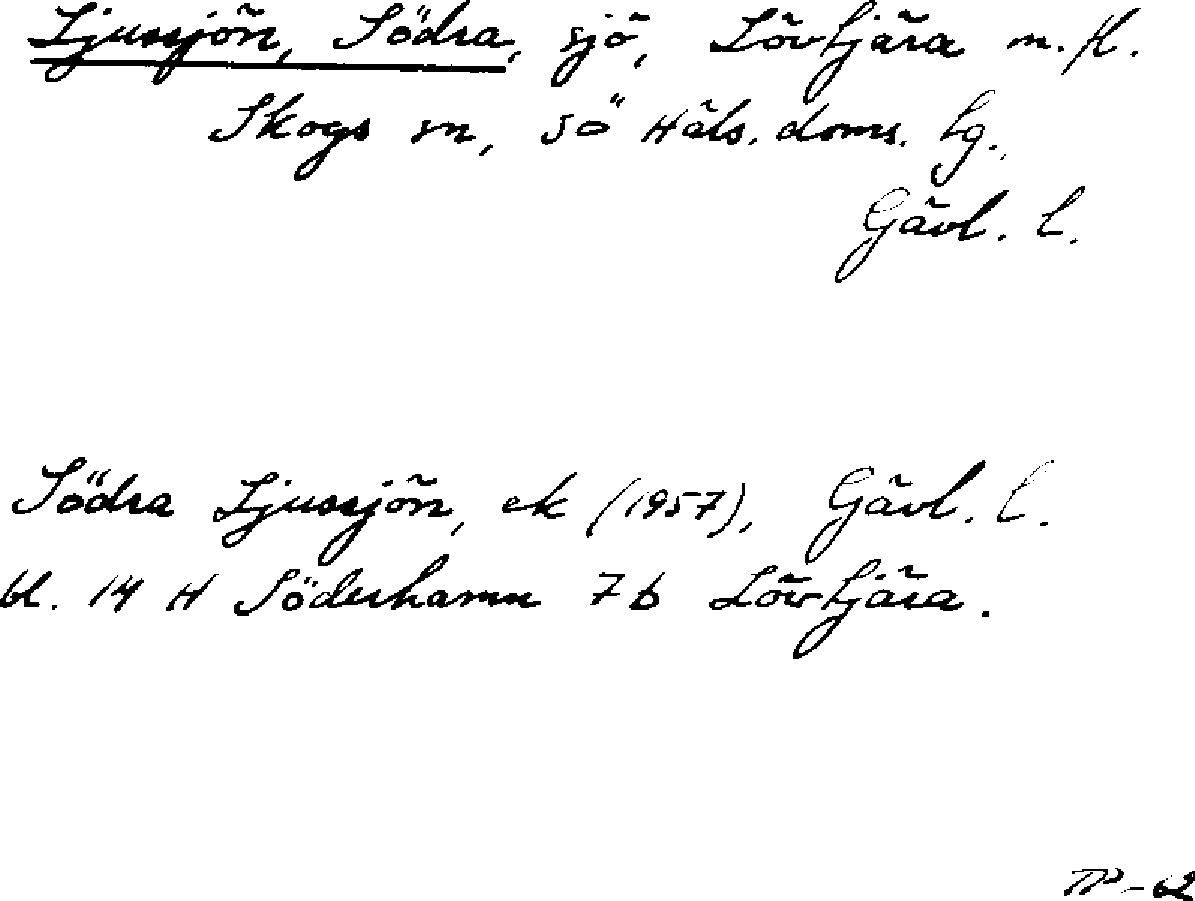 Ljussjön, Södra, sjö, Lövtjära m. fl.
Skogs sn, sö Häls. doms. lg.,
Gävl. l.
Södra Ljussjön, ek (1957), Gävl. l.
bl. 14 H Söderhamn 7 b Lövtjära.
TP-62